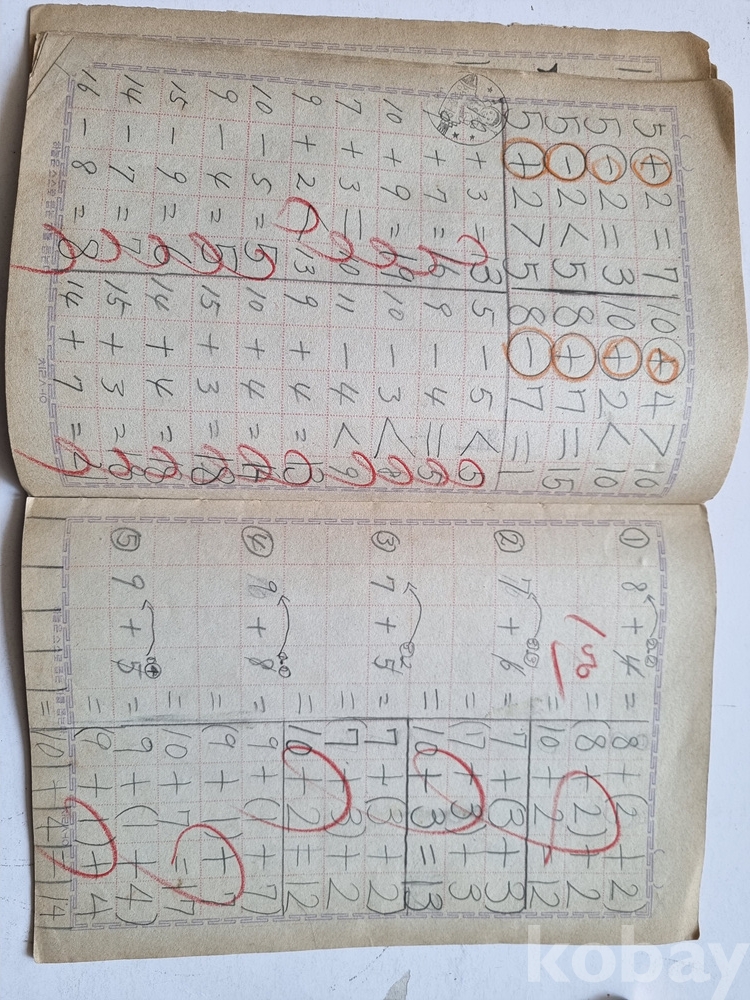 5 + 2 = 7 10 + 4 > 10
5 - 2 = 3 10 + 2 < 10
5 - 2 < 5 8 + 7 = 15
5 + 2 > 5 8 - 7 = 1
+ 3 = 13 5 - 5 <
+ 7 = 16 9 - 4 = 5
10 + 9 = 19 10 - 3 <
7 + 3 = 10 11 - 4 < 9
9 + 2 < 13 9 + 4 = 13
10 - 5 = 5 10 + 4 = 14
9 - 4 = 5 15 + 3 = 18
15 - 9 = 6 14 + 4 = 18
14 - 7 = 7 15 + 3 = 18
16 - 8 = 8 14 + 7 =
① 8 + 4 = 8 + (2 + 2)
= (8 + 2) + 2
= 10 + 2 = 12
② 7 + 6 = 7 + (3 + 3)
= (7 + 3) + 3
= 10 + 3 = 13
③ 7 + 5 = 7 + (3 + 2)
= (7 + 3) + 2
= 10 + 2 = 12
④ 9 + 8 = 9 + (1 + 7)
= (9 + 1) + 7
= 10 + 7 = 17
⑤ 9 + 5 = 9 + (1 + 4)
= (9 + 1) + 4
= 10 + 4 = 14
kobay